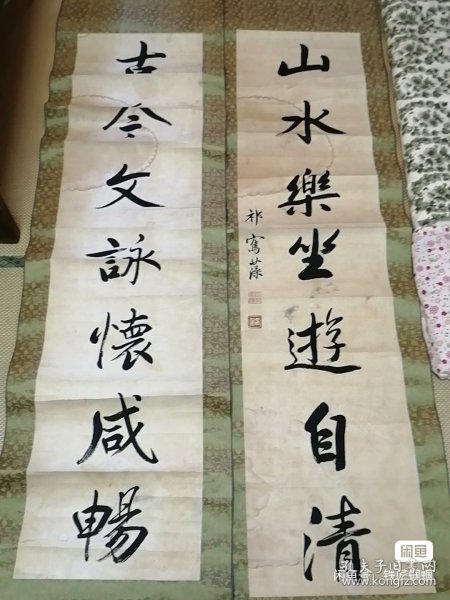 山水樂坐遊自清
祁寯藻
古今文詠懷咸暢
闲鱼
孔夫子旧书网
www.kongfz.com